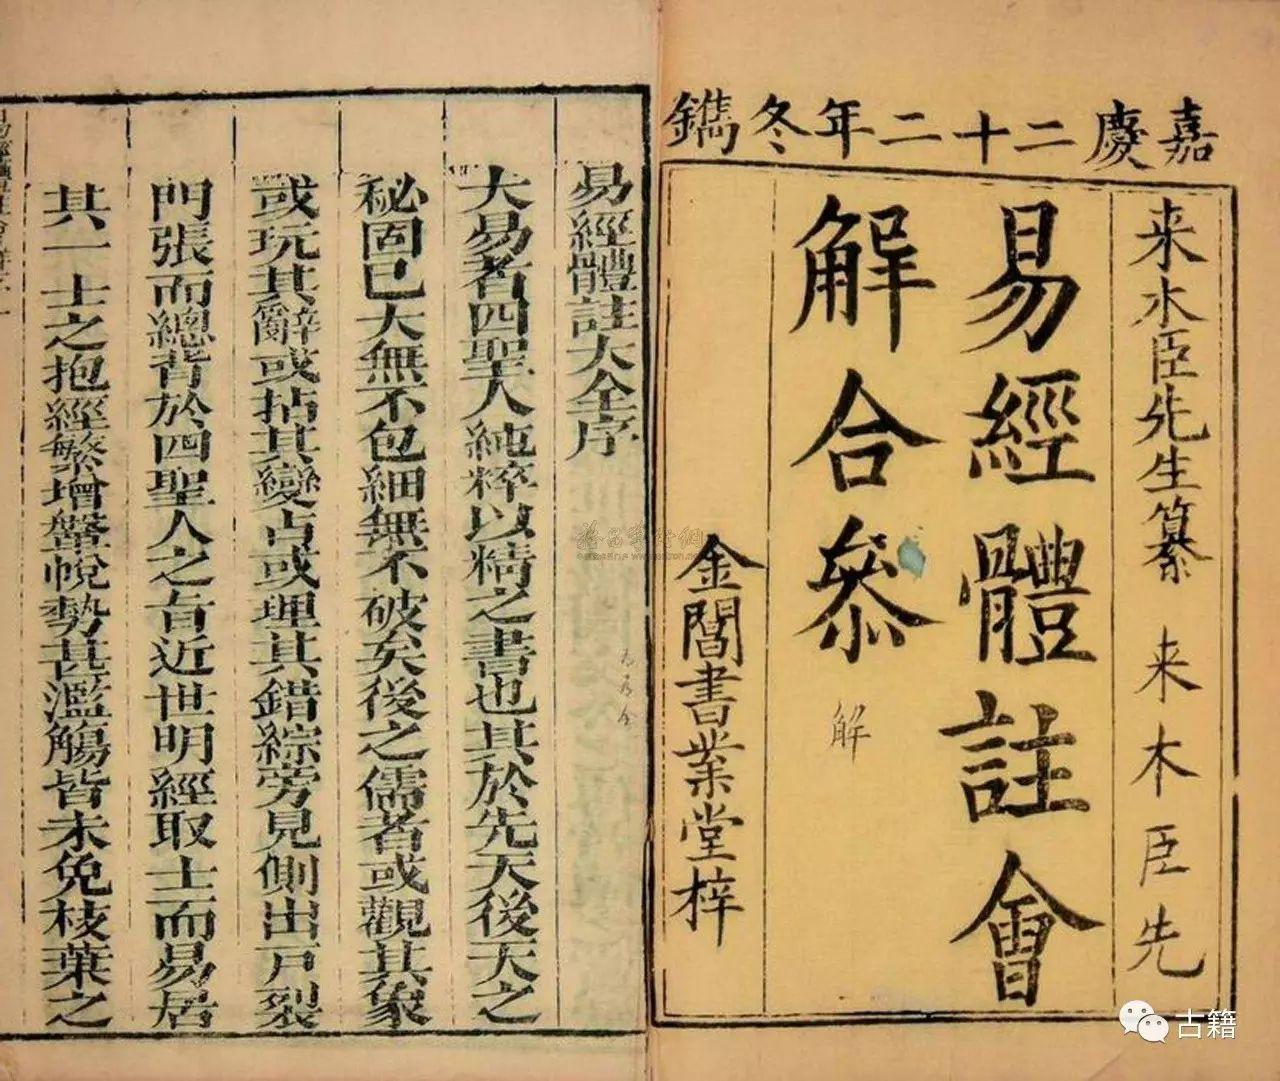 嘉慶二十二年冬鐫
来水臣先生纂 来木臣先
易經體註會
解合参
解
金閶書業堂梓
易經體註大全序
大易者四聖人純粹以精之書也其於先天後天之
秘固已大無不包細無不破矣後之儒者或觀其象
或玩其辭或拈其變占或理其錯綜旁見側出戸裂
門張而總背於四聖人之旨近世明經取士而易居
其一士之抱經繁增鞶帨勢甚濫觴皆未免枝葉之
古籍